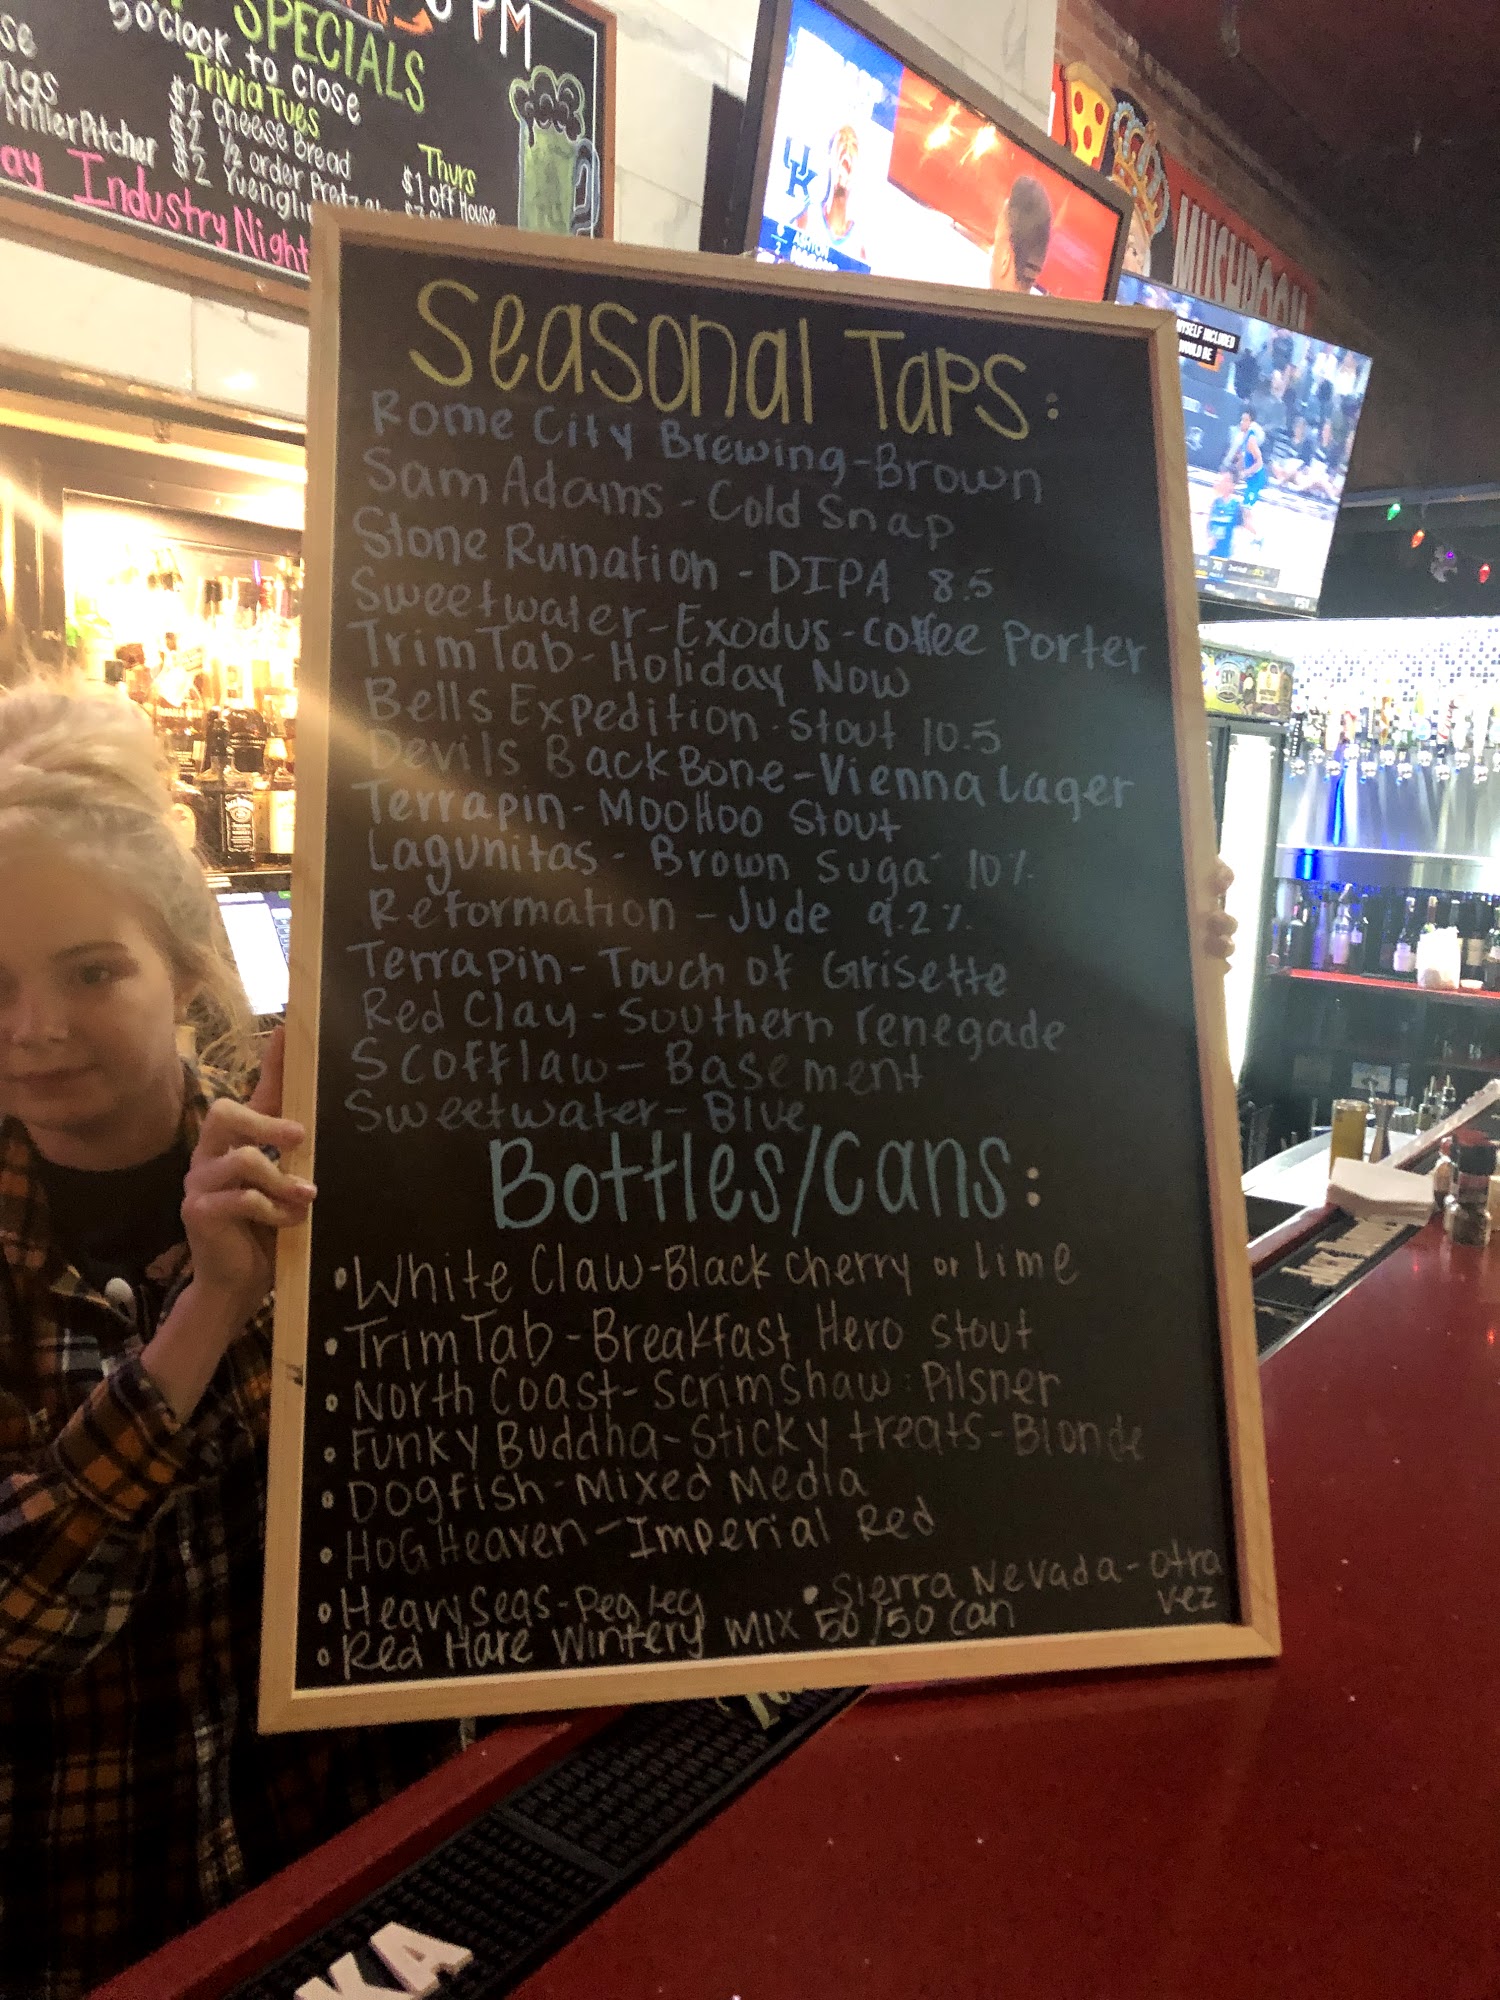 PM
SPECIALS
5 o'clock to Close
Trivia Tues
$2 cheese bread
$2 ½ order Pretz
$2 Yuengli
Miller Pitcher
ay Industry Night
Thurs
$1 off House
UK
MUSHROOM
MYSELF INCLUDED
WOULD BE
Seasonal Taps:
Rome City Brewing-Brown
Sam Adams - Cold Snap
Stone Ruination - DIPA 8.5
Sweetwater-Exodus-coffee Porter
TrimTab-Holiday Now
Bells Expedition-Stout 10.5
Devils BackBone-Vienna Lager
Terrapin-MooHoo Stout
Lagunitas - Brown Suga 10%
Reformation - Jude 9.2%
Terrapin-Touch of Grisette
Red Clay-Southern renegade
Scofflaw-Basement
Sweetwater-Blue
Bottles/Cans:
•White Claw-Black Cherry or lime
•TrimTab-Breakfast Hero Stout
•North Coast-Scrimshaw: Pilsner
•Funky Buddha-Sticky treats-Blonde
•Dogfish-Mixed Media
•HOG Heaven-Imperial Red
•Heavy seas-Peg leg
•Sierra Nevada-otra vez
•Red Hare Wintery MIX 50/50 can
KA